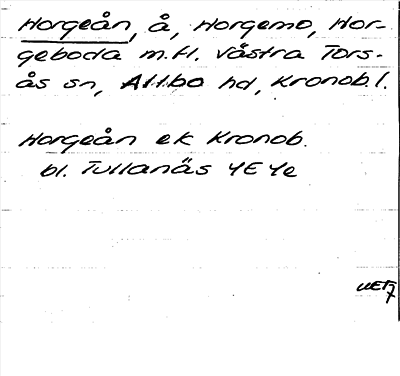 Horgeån, å, Horgemo, Hor-
geboda m.fl. Västra Tors-
ås sn, Allbo hd, Kronob.l.
Horgeån ek Kronob.
bl. Tullanäs 4E4e